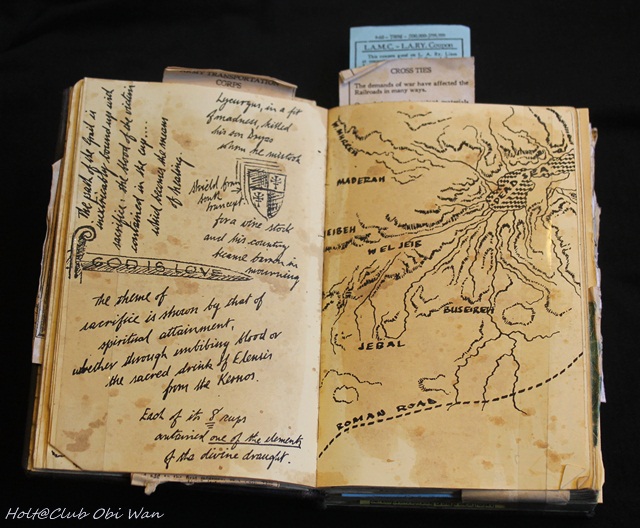 TRANSPORTATION
CORPS
L.A.M.C. - L.A.RY. Coupon
CROSS TIES
The demands of war have affected the
Railroads in many ways.
The path of the Grail is
inextricably bound up with
sacrifice: the blood of the victim
contained in the cup...
which becomes the means
of healing.
Lycurgus, in a fit
of madness, killed
his son Dryas
whom he mistook
Shield from
South
transept.
for a vine stock
and his country
became barren in
mourning
GOD IS LOVE
The theme of
sacrifice is shown by that of
spiritual attainment,
whether through imbibing blood or
the sacred drink of Eleusis
from the Kernos.
Each of its 8 cups
contained one of the elements
of the divine draught.
MADERAH
WELJEIB
BUSEIREH
JEBAL
ROMAN ROAD
Holt@Club Obi Wan